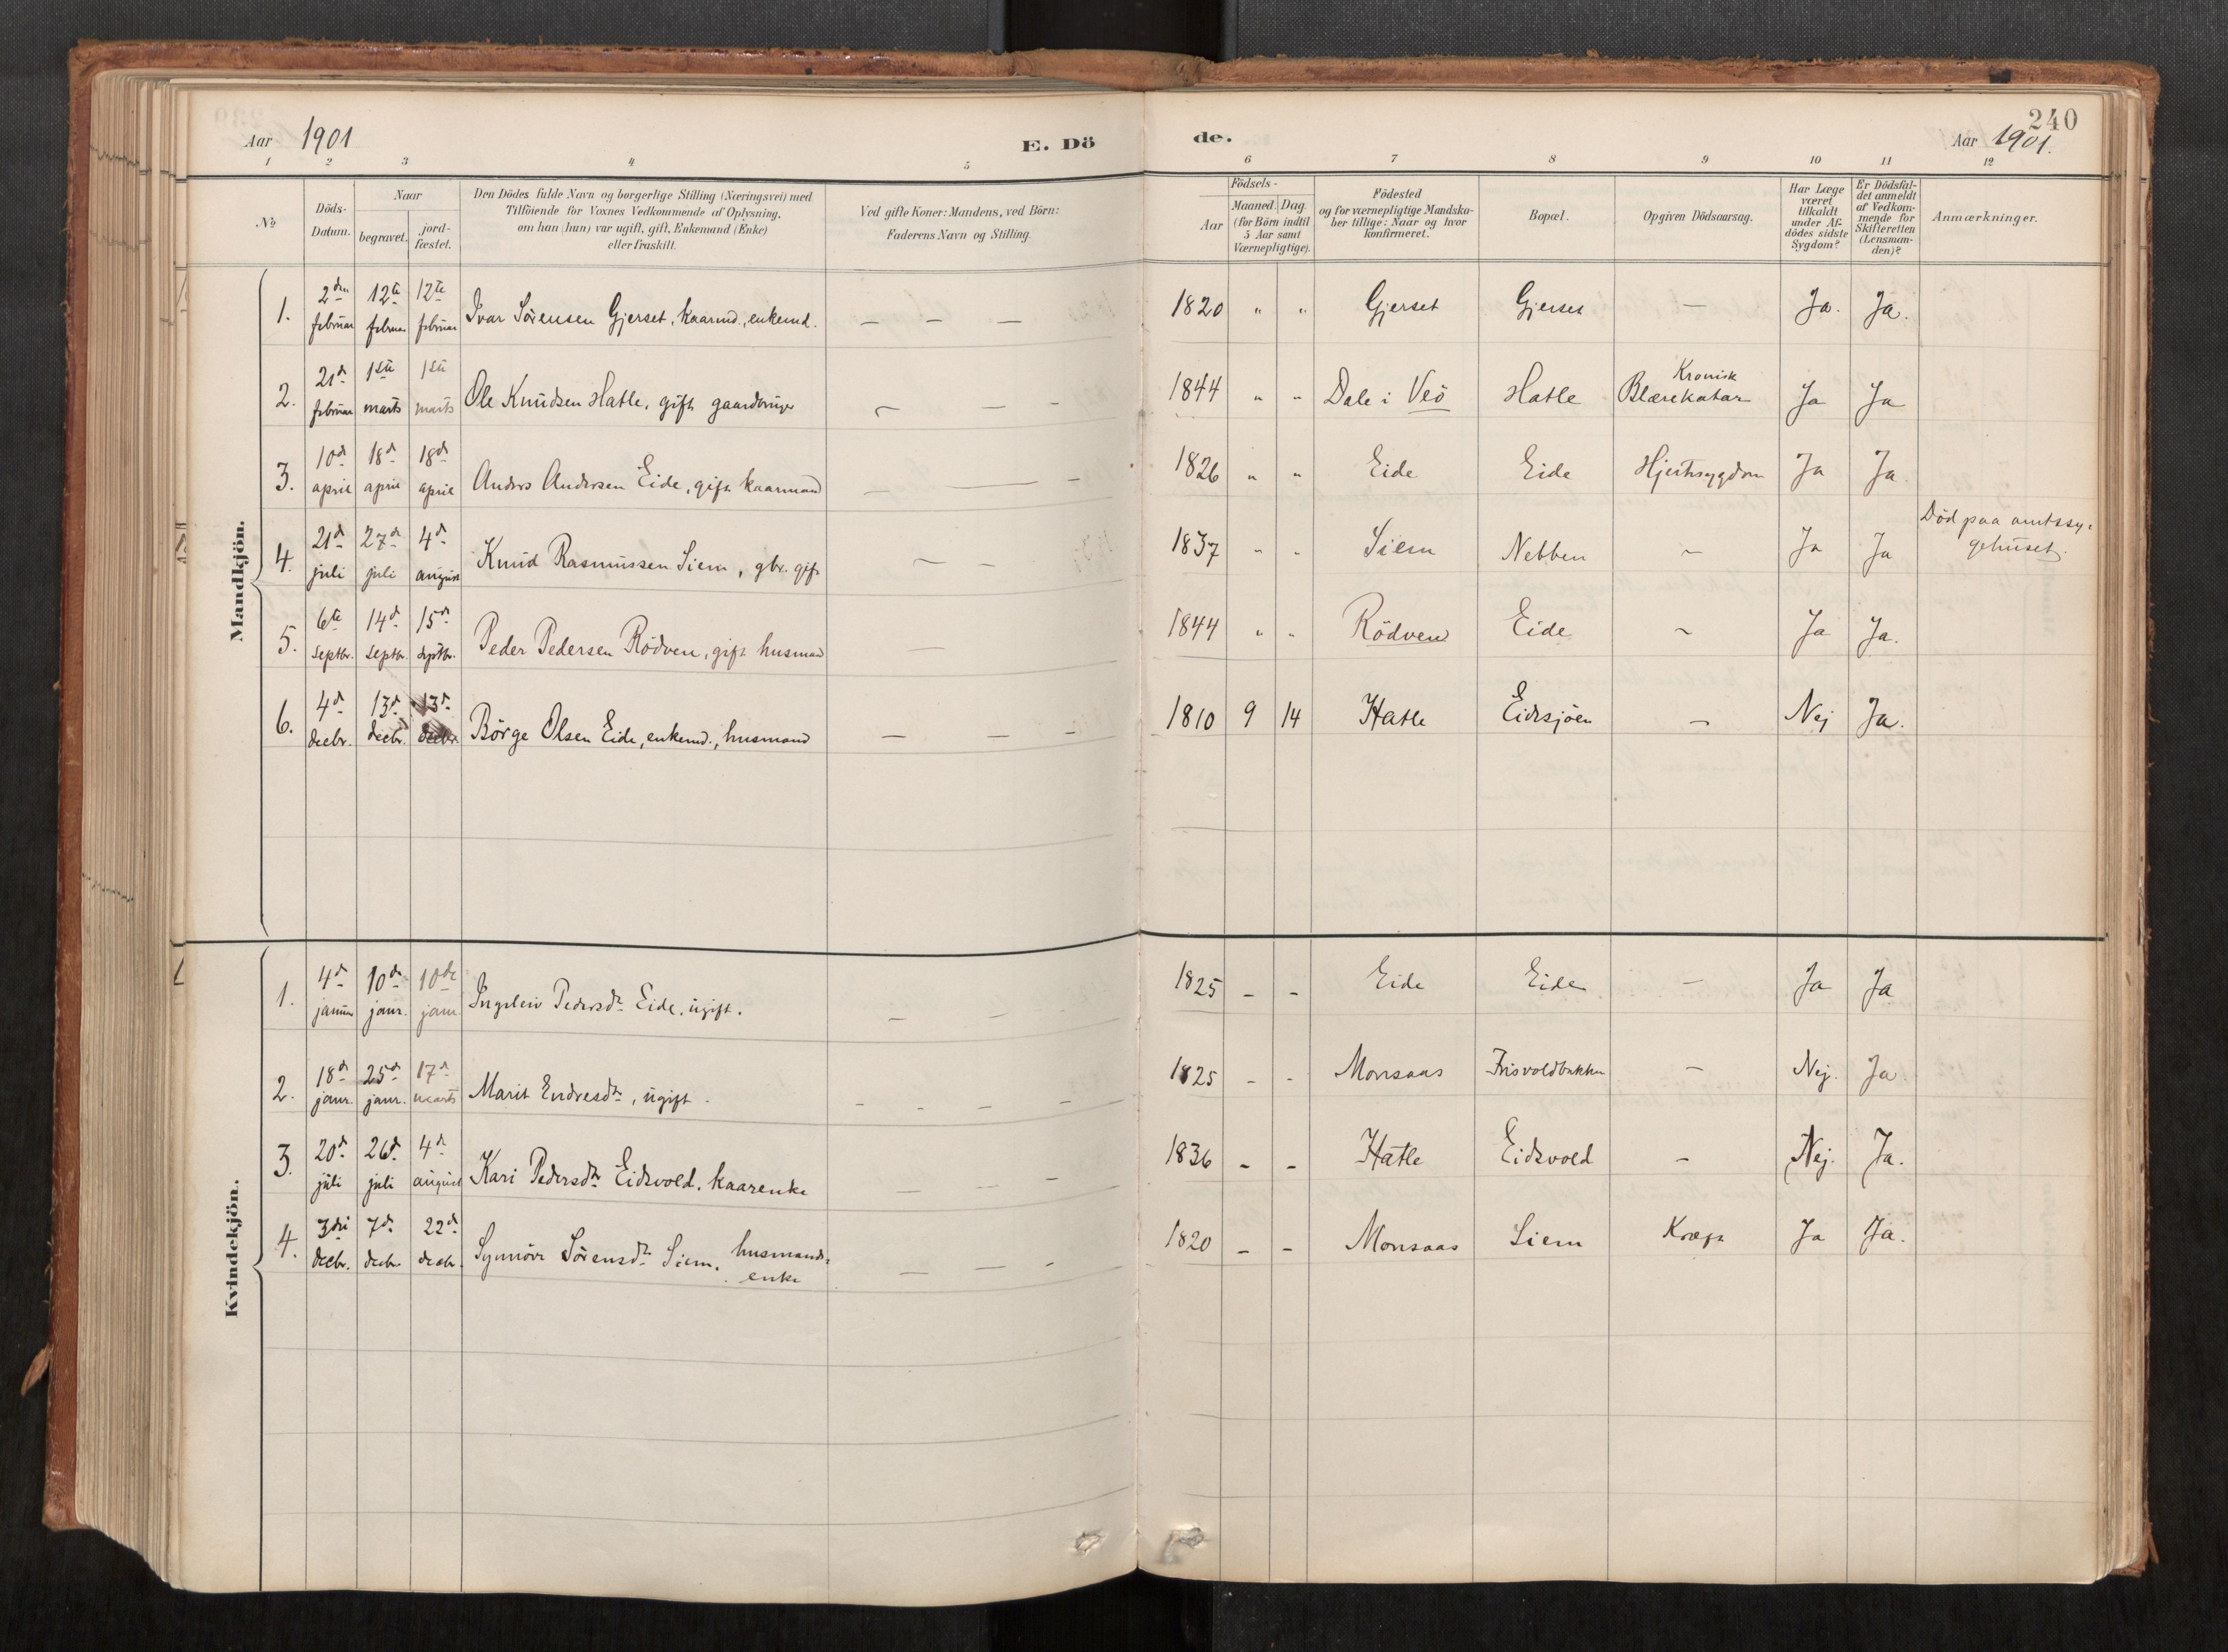 240
Aar 1901
E. Döde.
Aar 1901.
1 2 3 4 5 6 7 8 9 10 11 12
No
Döds-Datum.
Naar
begravet.
jord-fæstet.
Den Dödes fulde Navn og borgerlige Stilling (Næringsvei) med
Tilföiende for Voxnes Vedkommende af Oplysning,
om han (hun) var ugift, gift, Enkemand (Enke)
eller fraskilt.
Ved gifte Koner: Mandens, ved Börn:
Faderens Navn og Stilling.
Födsels-
Aar
Maaned. Dag.
(for Börn indtil
5 Aar samt
Værnepligtige).
Födested
og for værnepligtige Mandska-
ber tillige: Naar og hvor
konfirmeret.
Bopæl.
Opgiven Dödsaarsag.
Har Læge
været
tilkaldt
under Af-
dödes sidste
Sygdom?
Er Dödsfal-
det anmeldt
af Vedkom-
mende for
Skifteretten
(Lensman-
den)?
Anmærkninger.
Mandkjön.
1. 2den februar 12te februar 12te februar Ivar Sörensen Gjerset, kaarmd., enkemd. — — — 1820 " " Gjerset Gjerset — Ja. Ja.
2. 21d februar 1ste marts 1ste marts Ole Knudsen Hatle, gift gaardbruger — — — 1844 " " Dale i Veö Hatle Kronisk Blærekatar Ja Ja
3. 10d april 18d april 18d april Anders Andersen Eide, gift kaarmand — — — 1826 " " Eide Eide Hjertesygdom Ja Ja.
4. 21d juli 27d juli 4d august Knud Rasmussen Siem, gbr. gift — — 1837 " " Siem Nebben — Ja Ja Död paa amtssy-
gehuset.
5. 6te septbr. 14d septbr. 15d septbr. Peder Pedersen Rödven, gift husmand — 1844 " " Rödven Eide — Ja Ja.
6. 4d decbr. 13d decbr. 13d decbr. Börge Olsen Eide, enkemd., husmand — — — 1810 9 14 Hatle Eidsjöen — Nej Ja.
Kvindekjön.
1. 4d januar 10d janr. 10de janr Ingeleiv Pedersdr Eide, ugift. — — — 1825 – – Eide Eide — Ja Ja
2. 18d janr. 25d janr. 17d marts Marit Endresdr, ugift. – – – – 1825 – – Monsaas Frisvoldbakken — Nej. Ja
3. 20d juli 26d juli 4d august Kari Pedersdr Eidsvold, kaarenke — — – 1836 – – Hatle Eidsvold – Nej. Ja.
4. 3die decbr. 7d decbr. 22d decbr. Synnöve Sörensdr Siem, husmands-
enke — — – 1820 – – Monsaas Siem Kræft Ja Ja.